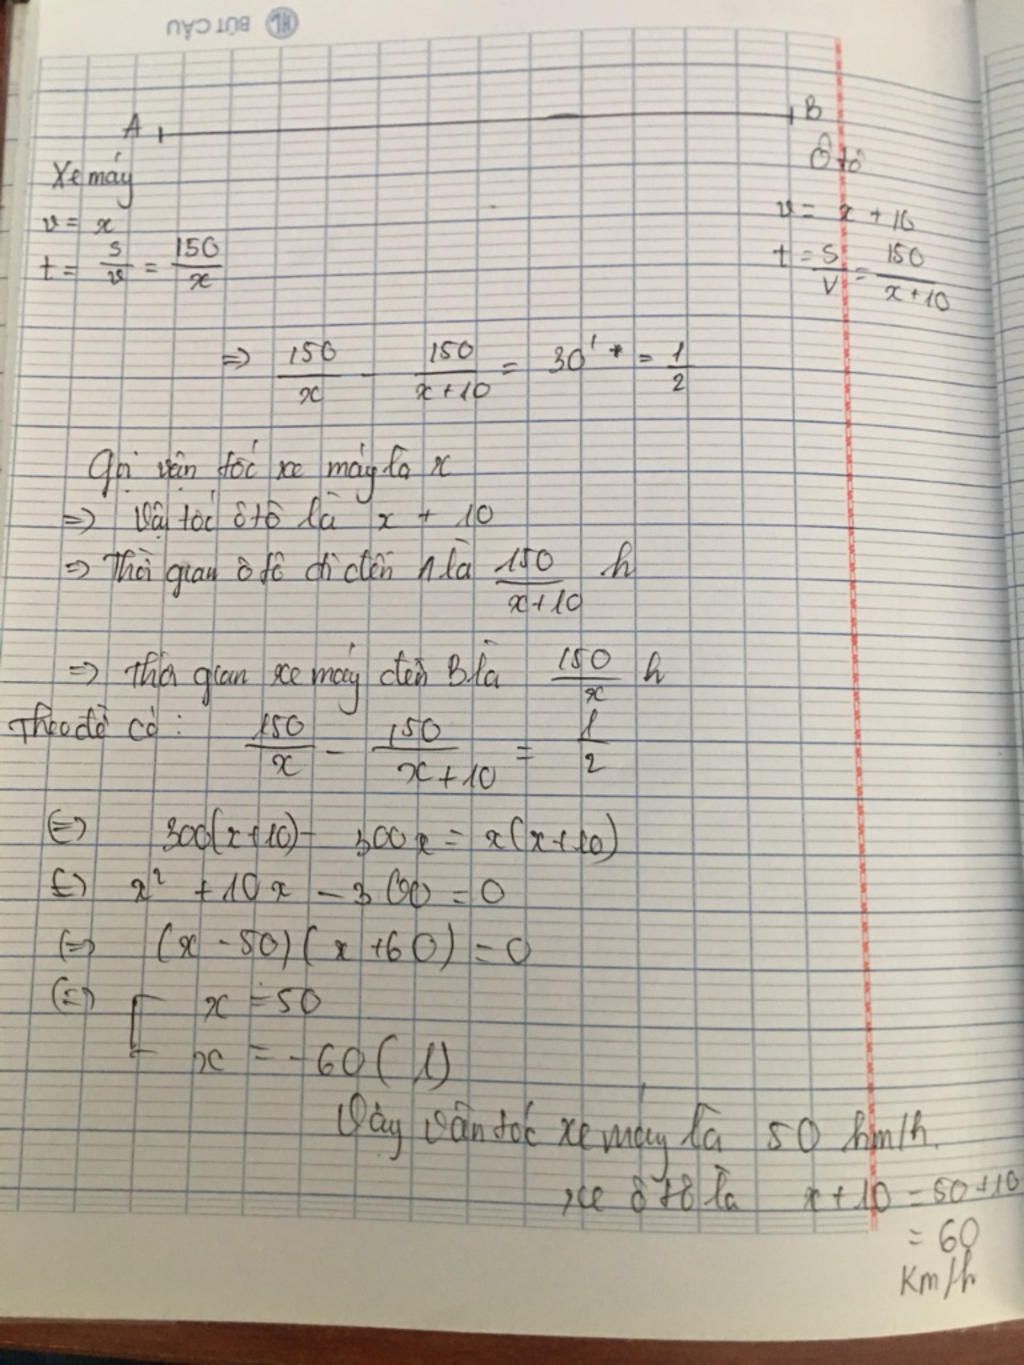 HL BÚT CẦU
A B
Xe máy
Ô tô
v = x
v = x + 10
t = s/v = 150/x
t = s/v = 150/x+10
=> 150/x - 150/x+10 = 30' = 1/2
Gọi vận tốc xe máy là x
=> Vậ tốc ô tô là x + 10
=> Thời gian ô tô đi đến A là 150/x+10 h
=> Thời gian xe máy đến B là 150/x h
Theo đề có: 150/x - 150/x+10 = 1/2
<=> 300(x+10) - 300x = x(x+10)
<=> x² + 10x - 3000 = 0
<=> (x - 50)(x + 60) = 0
<=> [ x = 50
x = -60 (l)
Vậy vận tốc xe máy là 50 km/h.
xe ô tô là x + 10 = 50 + 10
= 60
Km/h